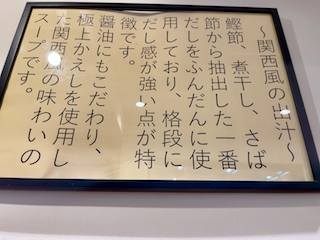 〜関西風の出汁〜
鰹節、煮干し、さば
節から抽出した一番
だしをふんだんに使
用しており、格段に
だし感が強い点が特
徴です。
醤油にもこだわり、
極上かえしを使用し
た関西風の味わいの
スープです。